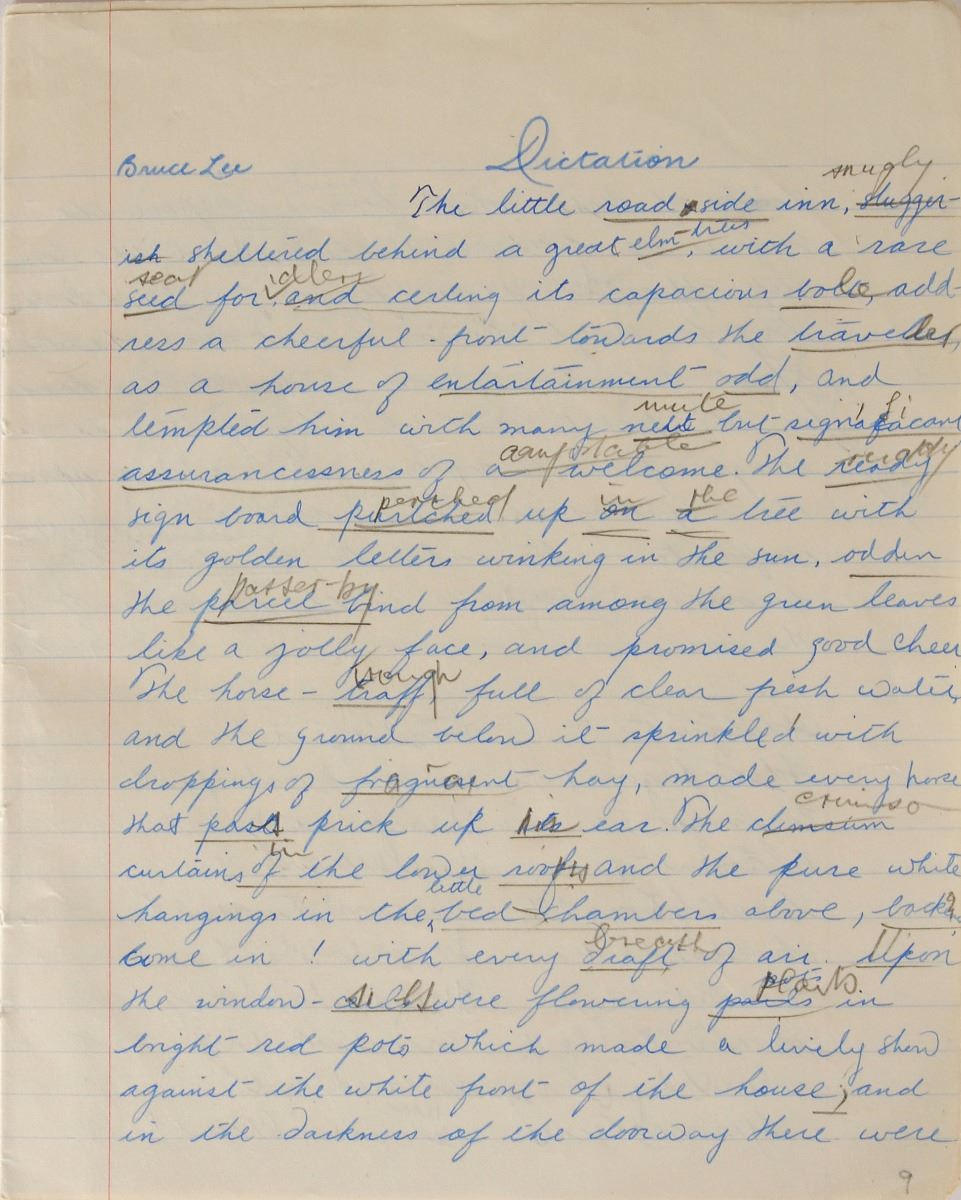 Bruce Lee Dictation
snugly
The little road side inn, slugger-
ish sheltered behind a great elm-tree, with a rare
seat idlers
seed for and cerling its capacious bole, add-
ress a cheerful front towards the traveller,
as a house of entertainment odd, and
mute fi
tempted him with many but significant
comfortable ruddy
assurancessness of a welcome. The ready
perched in the
sign board up on a tree with
its golden letters winking in the sun, odden
passer-by
the parcel bind from among the green leaves
like a jolly face, and promised good cheer
trough
The horse-traff, full of clear fresh water,
and the ground below it sprinkled with
droppings of fragrant hay, made every horse
crimson
that past prick up his ear. The climsum
in
curtains of the lower rooms and the pure white
little
hangings in the bed chambers above,
come in! with every draft of air. Upon
breath
plants
the window-sills were flowering in
bright red pots which made a lively show
against the white front of the house; and
in the darkness of the doorway there were
9